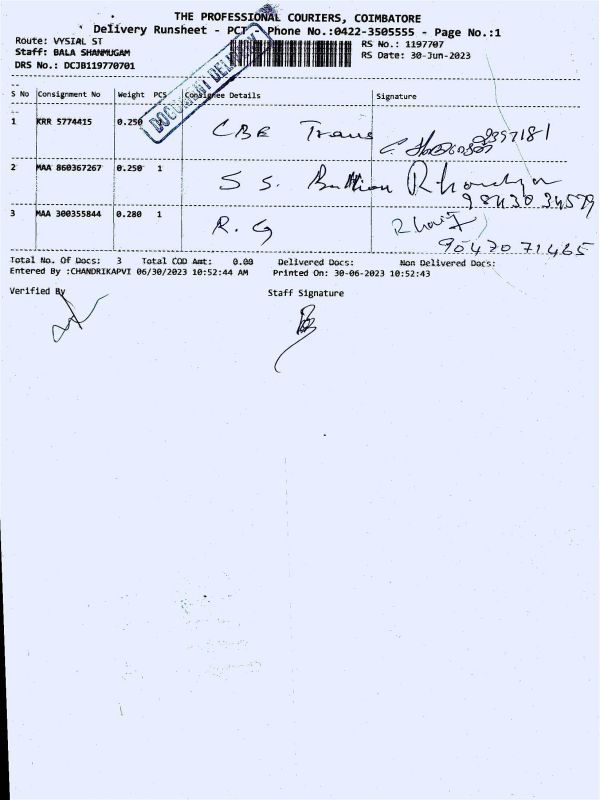 THE PROFESSIONAL COURIERS, COIMBATORE
Delivery Runsheet - PCT - Phone No.:0422-3505555 - Page No.:1
Route: VYSIAL ST
Staff: BALA SHANMUGAM
DRS No.: DCJB119770701
RS No.: 1197707
RS Date: 30-Jun-2023
DOCUMENT DELIVERY
S No Consignment No Weight PCS Consignee Details Signature
1 KRR 5774415 0.250 CBE Trans
2 MAA 860367267 0.250 1 S S. Bullion
98430 34579
3 MAA 300355844 0.280 1 R. G
90470 71465
Total No. Of Docs: 3 Total COD Amt: 0.00 Delivered Docs: Non Delivered Docs:
Entered By :CHANDRIKAPVI 06/30/2023 10:52:44 AM Printed On: 30-06-2023 10:52:43
Verified By Staff Signature